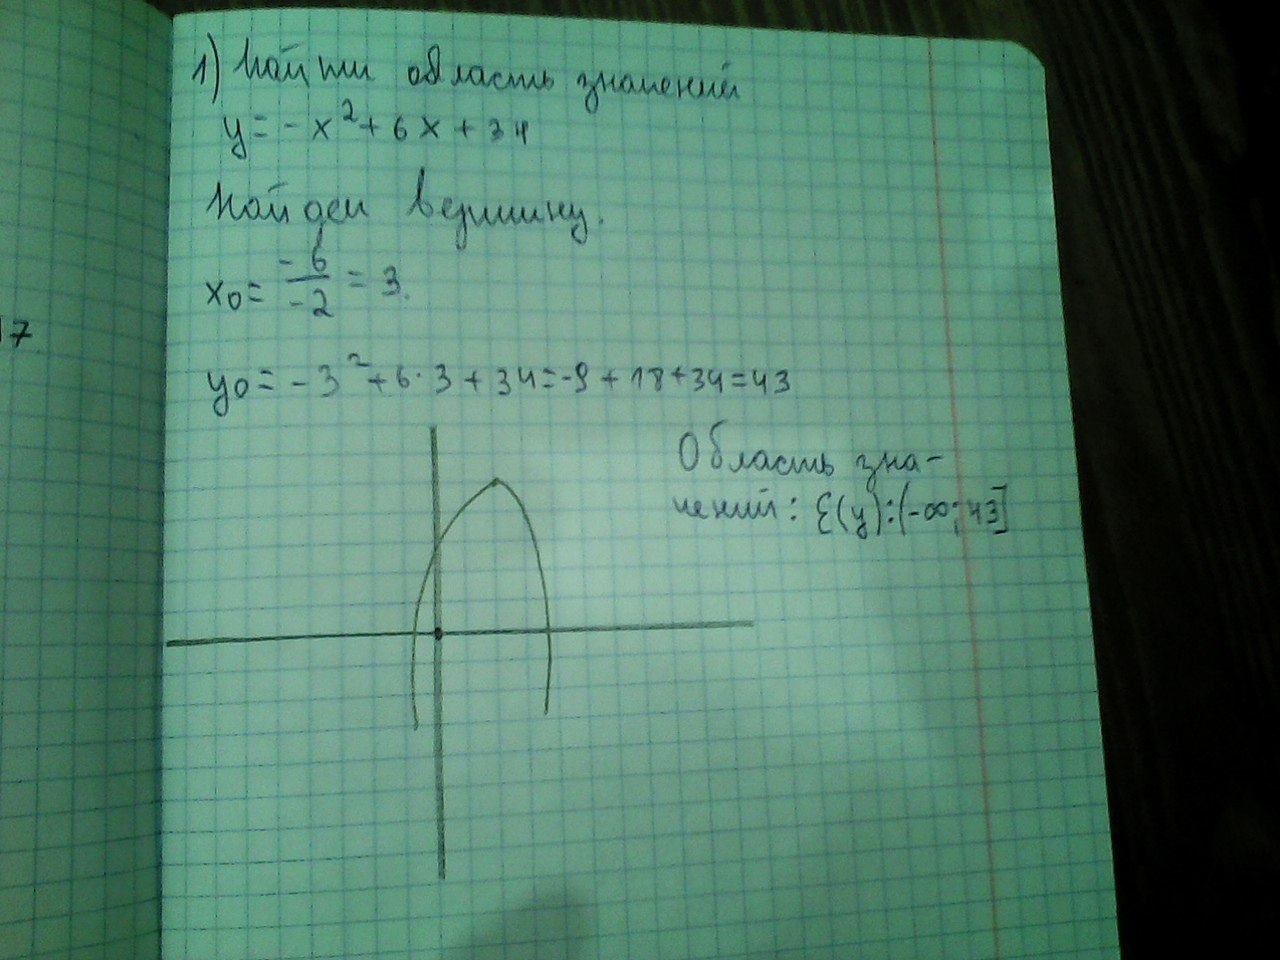 1) Найти область значений
y = - x² + 6x + 34
Найдем вершину.
x₀ = -6/-2 = 3.
17
y₀ = - 3² + 6·3 + 34 = -9 + 18 + 34 = 43
Область зна-
чений: E(y): (-∞; 43]